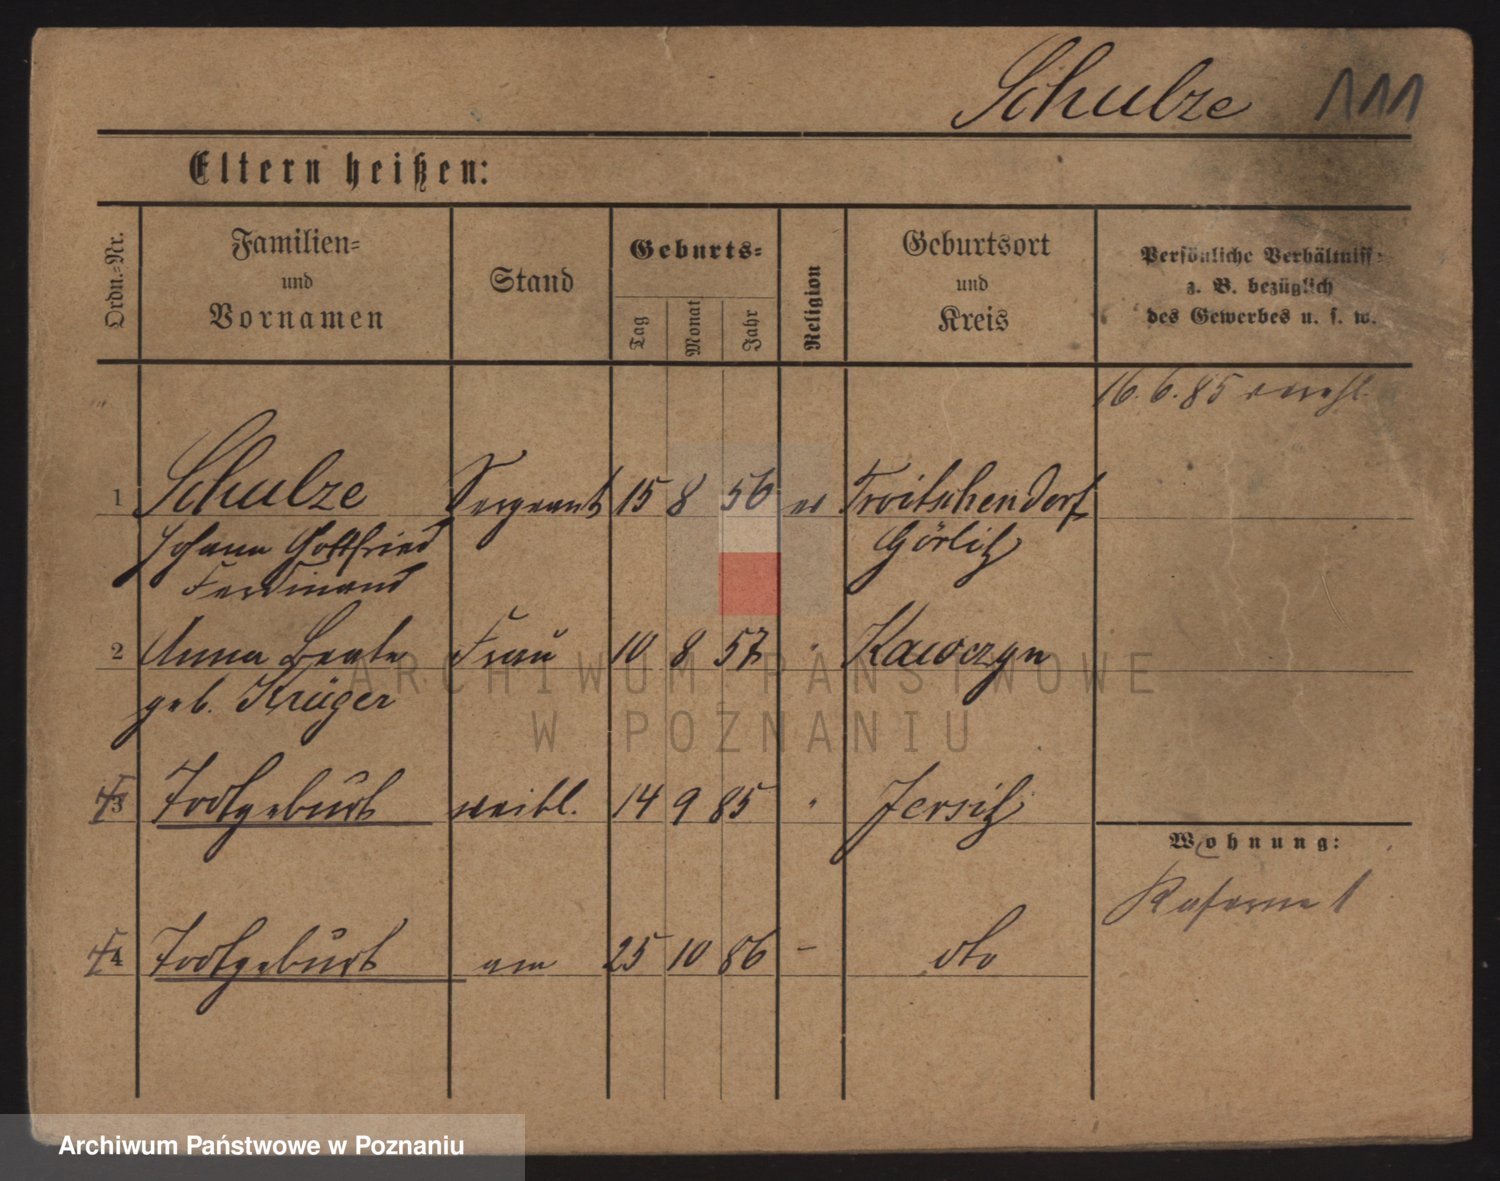 Schulze 111
Eltern heißen:
Ordn.-Nr.
Familien-
und
Vornamen
Stand
Geburts-
Tag
Monat
Jahr
Religion
Geburtsort
und
Kreis
Persönliche Verhältniss
z. B. bezüglich
des Gewerbes u. s. w.
16. 6. 85
1 Schulze Sergeant 15 8 56 ev Troitschendorf
Johann Gottfried Görlitz
Ferdinand
2 Anna Beate Frau 10 8 57 " Kawczyn
geb. Krüger
3 Todtgeburt weibl. 14 9 85 " Jersitz
Wohnung:
Kaserne 1
4 Todtgeburt 25 10 86 - dto
ARCHIWUM PAŃSTWOWE
W POZNANIU
Archiwum Państwowe w Poznaniu